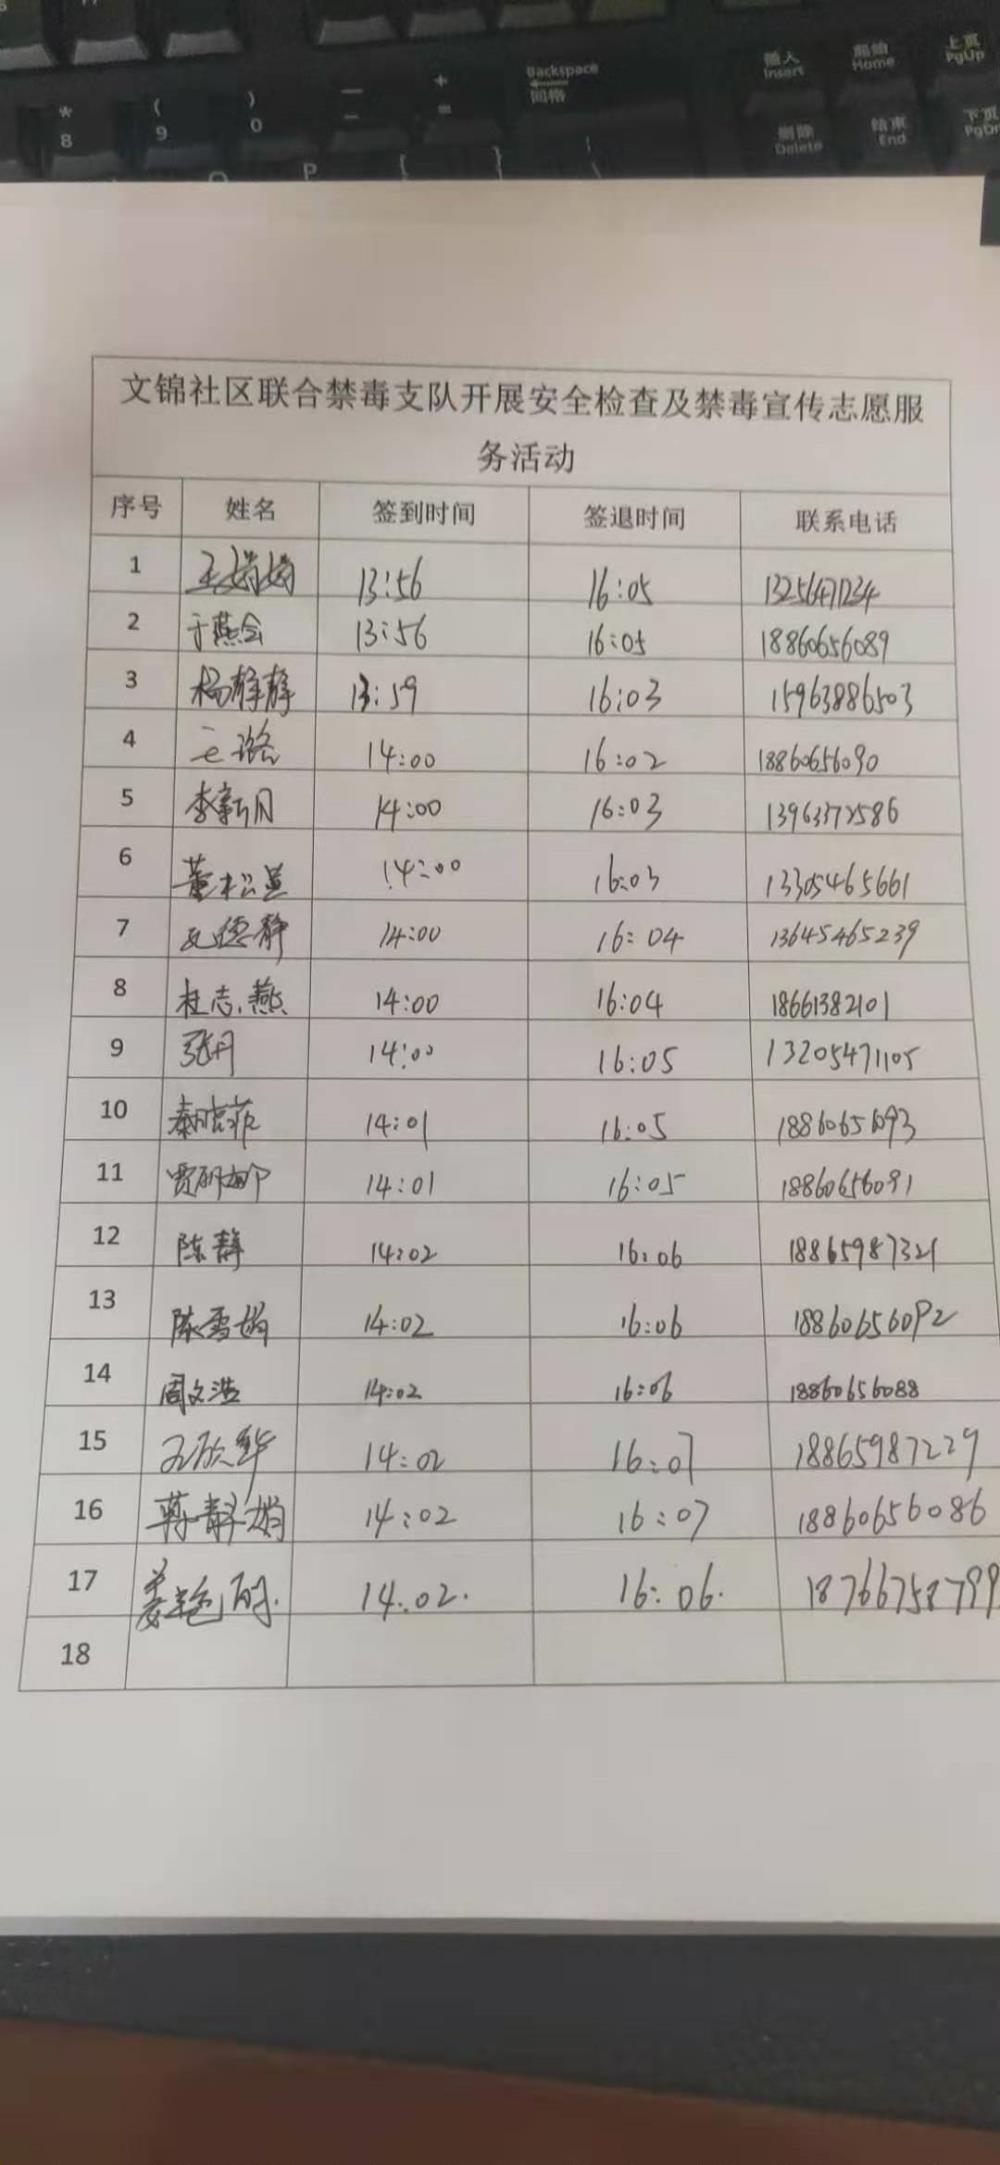 * ( ) — + Backspace 插入 起始 上页
8 9 0 - = 间格 Insert Home PgUp
P { } | 删除 结束 下页
Delete End
文锦社区联合禁毒支队开展安全检查及禁毒宣传志愿服
务活动
序号 姓名 签到时间 签退时间 联系电话
1 王娟娟 13:56 16:05
2 于燕会 13:56 16:05 18860656089
3 杨静静 13:59 16:03 15963886503
4 王璐 14:00 16:02 18860656090
5 李新月 14:00 16:03
6 14:00 16:03 13305465661
7 14:00 16:04 13645465239
8 杜志燕 14:00 16:04 18661382101
9 张丹 14:00 16:05 13205471105
10 秦晓菲 14:01 16:05 18860656093
11 14:01 16:05 18860656091
12 陈静 14:02 16:06 18865987321
13 陈雪娟 14:02 16:06 18860656092
14 周文洪 14:02 16:06 18860656088
15 14:02 16:07 18865987229
16 蒋静娟 14:02 16:07 18860656086
17 姜艳丽. 14:02. 16:06. 18766758799
18